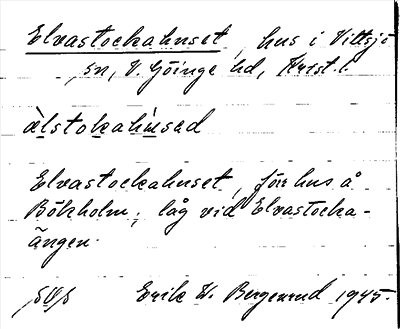 Elvastockahuset, hus i Vittsjö
sn, V. Göinge hd, Krist. l.
älstokahùsəd
Elvastockahuset, förr hus å
Bökholm; låg vid Elvastocka-
ängen.
Erik W. Bergenrud 1945.